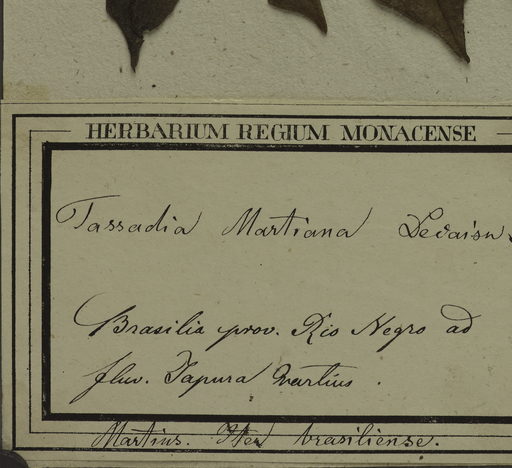 HERBARIUM REGIUM MONACENSE
Tassadia Martiana Decaisn
Brasilia prov. Rio Negro ad
fluv. Japura Martius.
Martius. Iter brasiliense.